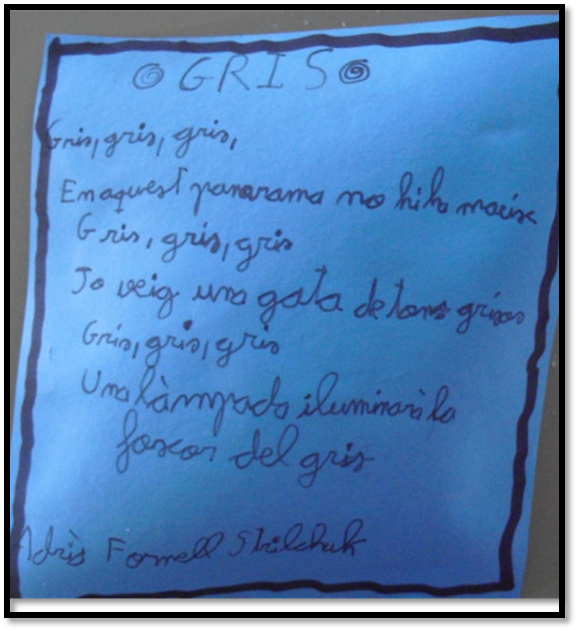 GRIS
Gris, gris, gris,
En aquest panorama no hi ha macís
Gris, gris, gris
Jo veig una gata de tons grisos
Gris, gris, gris
Una làmpada iluminarà la
foscor del gris
Adrià Fornell